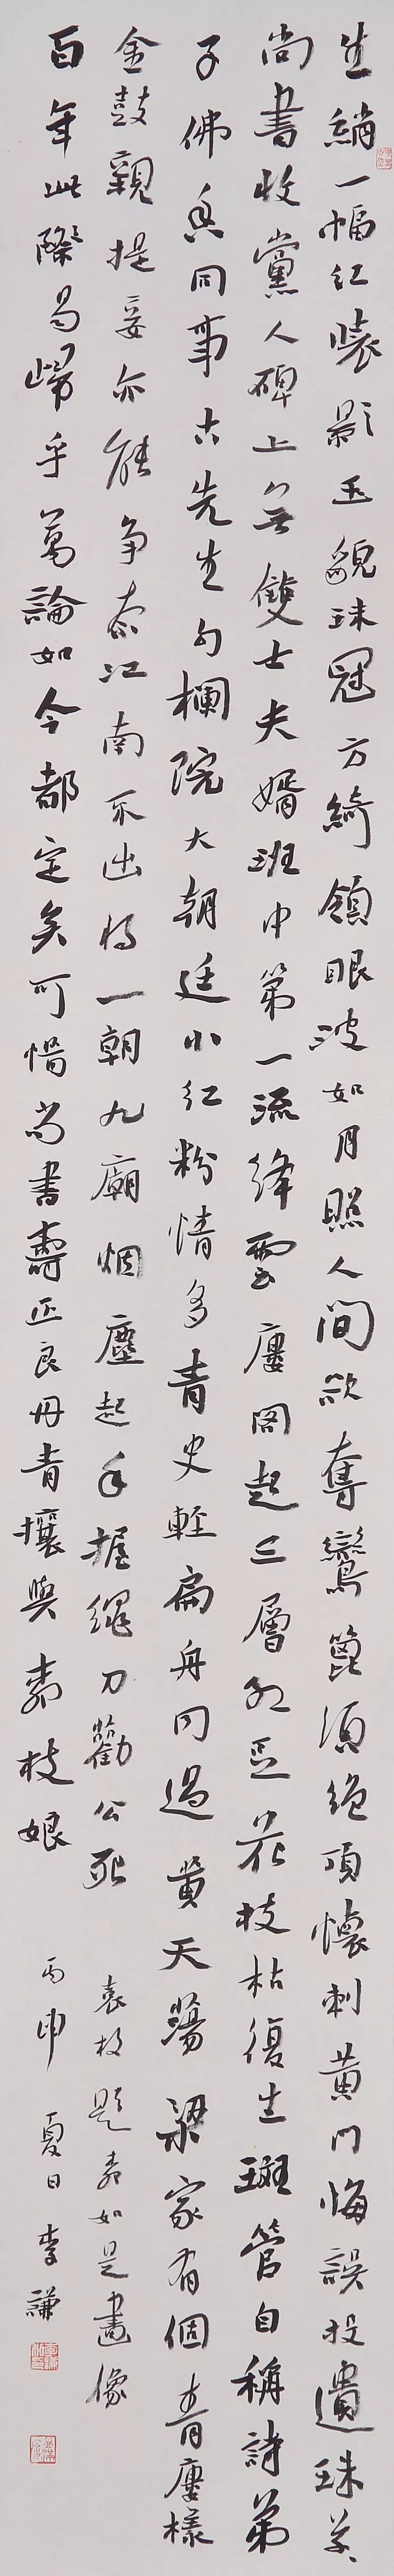 生綃一幅紅裝影玉貌珠冠方綺領眼波如月照人間欲奪鸞篦須絕頂懷刺黃門悔誤投遺珠草〻
尚書收黨人碑上無雙士夫婿班中第一流絳雲廔閣起三層紅豆花枝枯復生斑管自稱詩弟
子佛香同事古先生勾欄院大朝廷小紅粉情多青史輕扁舟同過黃天蕩梁家有個青廔樣
金鼓親提妾亦能争柰江南不出將一朝九廟烟塵起手握繩刀勸公死 袁枚題柳如是畫像
百年此際曷歸乎萬論如今都定矣可惜尚書壽正良丹青攘與柳枝娘 丙申夏日李謙